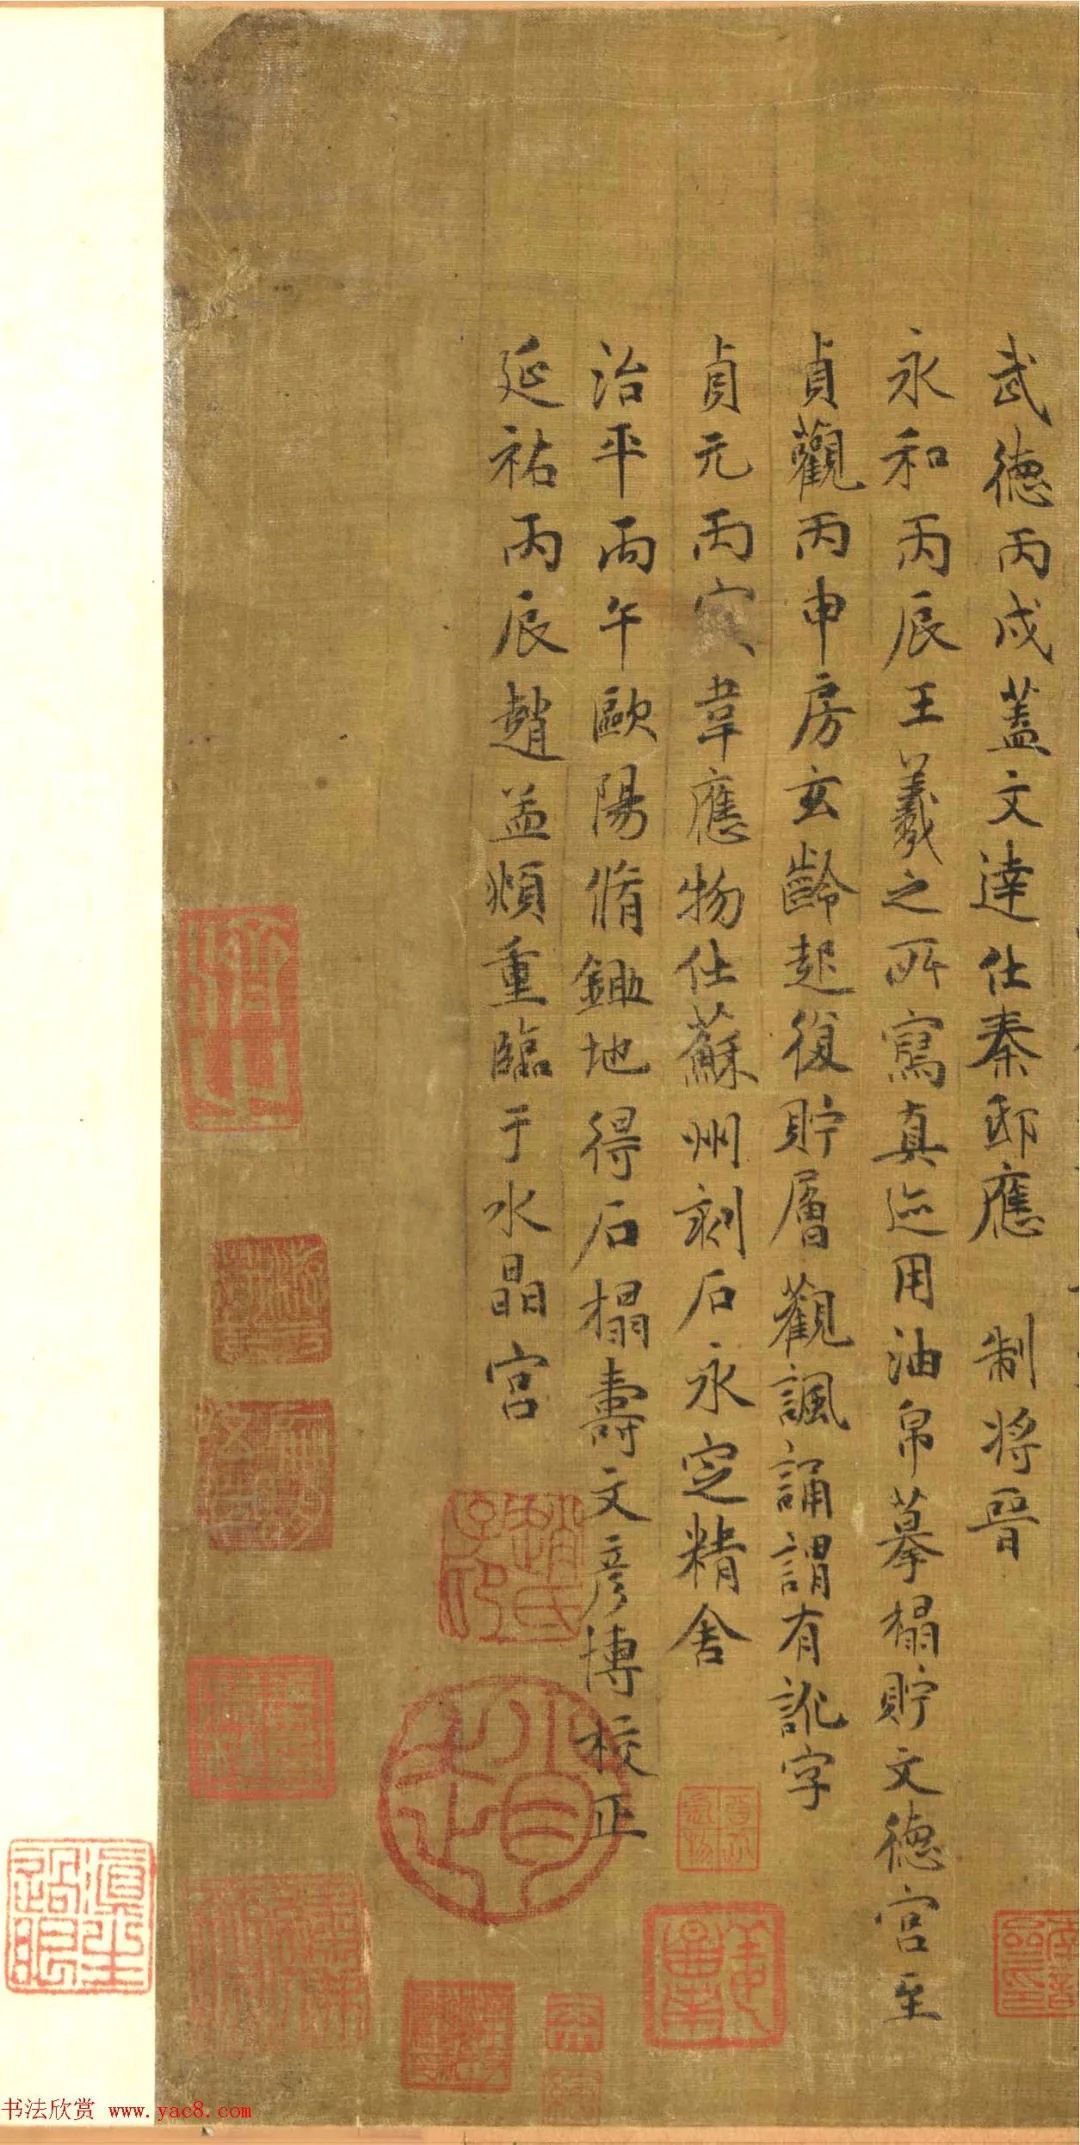 武德丙戌蓋文達仕秦邸應 制將晉
永和丙辰王羲之所寫真迹用油帛摹榻貯文德宮至
貞觀丙申房玄齡起復貯層觀諷誦謂有訛字
貞元丙寅韋應物仕蘇州刻石永定精舍
治平丙午歐陽脩鋤地得石榻壽文彥博校正
延祐丙辰趙孟頫重臨于水晶宮
趙氏子印
书法欣赏 www.yac8.com